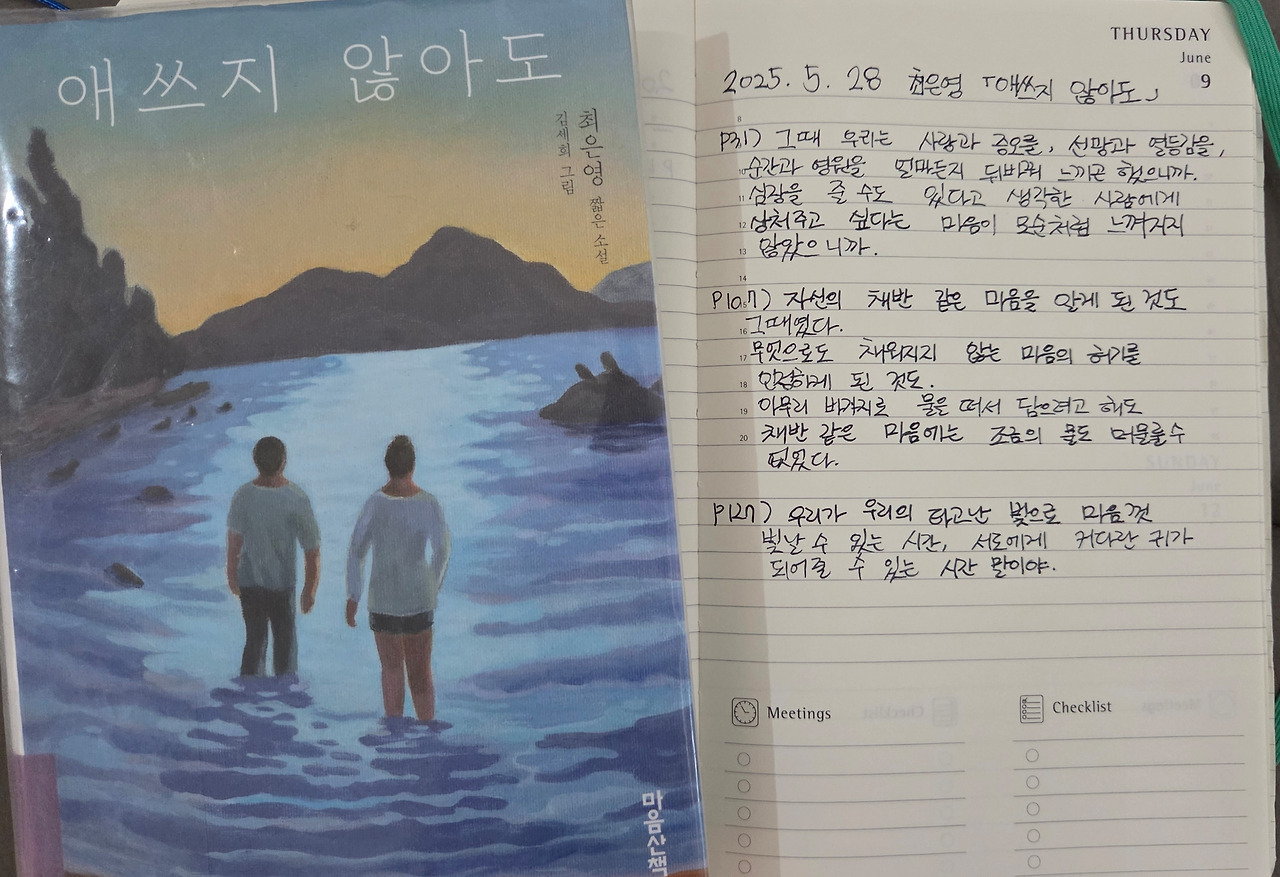 애쓰지 않아도
최은영 짧은 소설
김세희 그림
마음산책
THURSDAY
June
9
2025. 5. 28 최은영 「애쓰지 않아도」
8
P31) 그때 우리는 사랑과 증오를, 선망과 열등감을,
10 순간과 영원을 얼마든지 뒤바꿔 느끼곤 했으니까.
11 심장을 줄 수도 있다고 생각한 사람에게
12 상처주고 싶다는 마음이 모순처럼 느껴지지
13 않았으니까.
14
P107) 자신의 채반 같은 마음을 알게 된 것도
16 그때였다.
17 무엇으로도 채워지지 않는 마음의 허기를
18 인정하게 된 것도.
19 아무리 바가지로 물을 떠서 담으려고 해도
20 채반 같은 마음에는 조금의 물도 머물 수
없었다.
P127) 우리가 우리의 타고난 빛으로 마음껏
빛날 수 있는 시간, 서로에게 커다란 귀가
되어줄 수 있는 시간 말이야.
Meetings
Checklist